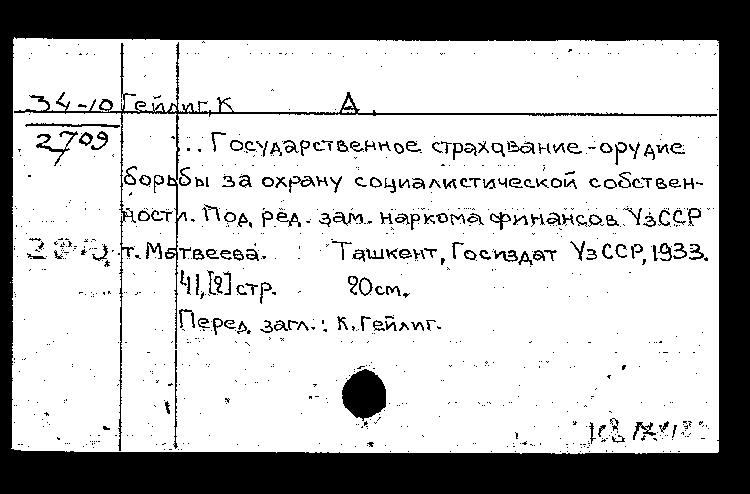 34-10 Гейлиг, К А.
2709
... Государственное страхование - орудие
борьбы за охрану социалистической собствен-
ности. Под. ред. зам. наркома финансов УзССР
т. Матвеева. Ташкент, Госиздат УзССР, 1933.
41, [2] стр. 20см.
Перед загл.: К. Гейлиг.